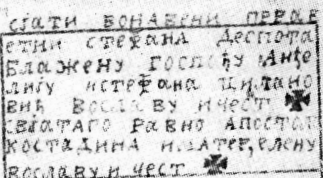 сјати бонавени первѣ
етни стефана деспота
блажену госпођу анђе
лију истефана цилано
вић вославу и чест ✠
свјатаго равно апостол
костадина иматер, елену
вославу и чест ✠